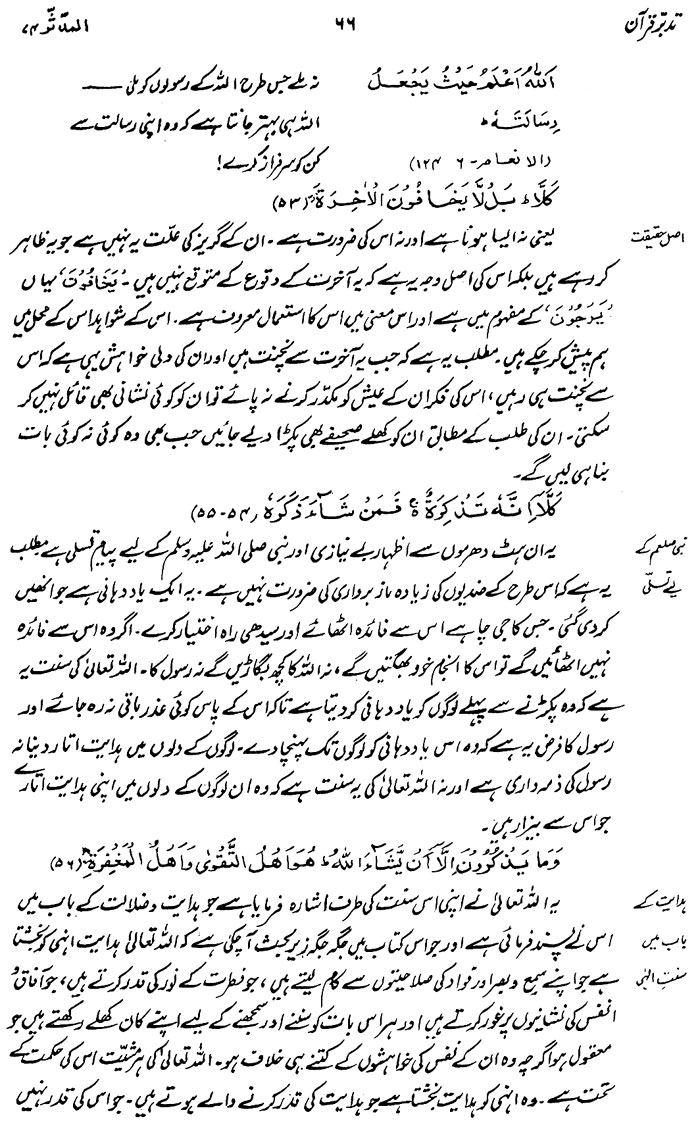 تدبرِ قرآن ۶۶ المدّثّر ۷۴
اَللّٰهُ اَعْلَمُ حَيْثُ يَجْعَلُ نہ ملے جس طرح اللہ کے رسولوں کو ملی ——
رِسَالَتَهٗ ؕ اللہ ہی بہتر جانتا ہے کہ وہ اپنی رسالت سے
(الانعام - ۶ : ۱۲۴) کن کو سرفراز کرے!
كَلَّا ؕ بَلْ لَّا يَخَافُوْنَ الْاٰخِرَةَ (۵۳)
اصل حقیقت یعنی نہ ایسا ہونا ہے اور نہ اس کی ضرورت ہے۔ ان کے گریز کی علّت یہ نہیں ہے جو یہ ظاہر
کر رہے ہیں بلکہ اس کی اصل وجہ یہ ہے کہ یہ آخرت کے وقوع کے متوقع نہیں ہیں۔ ’يَخَافُوْنَ‘ یہاں
’يَرْجُوْنَ‘ کے مفہوم میں ہے اور اس معنی میں اس کا استعمال معروف ہے۔ اس کے شواہد اس کے محل میں
ہم پیش کر چکے ہیں۔ مطلب یہ ہے کہ جب یہ آخرت سے نچنت ہیں اور ان کی دلی خواہش یہی ہے کہ اس
سے نچنت ہی رہیں، اس کی فکر ان کے عیش کو مکدّر کرنے نہ پائے تو ان کو کوئی نشانی بھی قائل نہیں کر
سکتی۔ ان کی طلب کے مطابق ان کو کھلے صحیفے بھی پکڑا دیے جائیں جب بھی وہ کوئی نہ کوئی بات
بنا ہی لیں گے۔
كَلَّاۤ اِنَّهٗ تَذْكِرَةٌ ۚ فَمَنْ شَآءَ ذَكَرَهٗ (۵۴-۵۵)
نبی صلعم کے یہ ان ہٹ دھرموں سے اظہار بے نیازی اور نبی صلی اللہ علیہ وسلم کے لیے پیام تسلی ہے مطلب
لیے تسلّی یہ ہے کہ اس طرح کے ضدیوں کی زیادہ ناز برداری کی ضرورت نہیں ہے۔ یہ ایک یاددہانی ہے جو انھیں
کر دی گئی۔ جس کا جی چاہے اس سے فائدہ اٹھائے اور سیدھی راہ اختیار کرے۔ اگر وہ اس سے فائدہ
نہیں اٹھائیں گے تو اس کا انجام خود بھگتیں گے، نہ اللہ کا کچھ بگاڑیں گے نہ رسول کا۔ اللہ تعالیٰ کی سنت یہ
ہے کہ وہ پکڑنے سے پہلے لوگوں کو یاددہانی کر دیتا ہے تاکہ اس کے پاس کوئی عذر باقی نہ رہ جائے اور
رسول کا فرض یہ ہے کہ وہ اس یاددہانی کو لوگوں تک پہنچا دے۔ لوگوں کے دلوں میں ہدایت اتار دینا نہ
رسول کی ذمہ داری ہے اور نہ اللہ تعالیٰ کی یہ سنت ہے کہ وہ ان لوگوں کے دلوں میں اپنی ہدایت اتارے
جو اس سے بیزار ہیں۔
وَمَا يَذْكُرُوْنَ اِلَّاۤ اَنْ يَّشَآءَ اللّٰهُ ؕ هُوَ اَهْلُ التَّقْوٰى وَاَهْلُ الْمَغْفِرَةِ (۵۶)
ہدایت کے یہ اللہ تعالیٰ نے اپنی اس سنت کی طرف اشارہ فرمایا ہے جو ہدایت و ضلالت کے باب میں
باب میں اس نے پسند فرمائی ہے اور جو اس کتاب میں جگہ جگہ زیر بحث آ چکی ہے کہ اللہ تعالیٰ ہدایت انہی کو بخشتا
سنتِ الٰہی ہے جو اپنے سمع و بصر اور فواد کی صلاحیتوں سے کام لیتے ہیں، جو فطرت کے نور کی قدر کرتے ہیں، جو آفاق و
انفس کی نشانیوں پر غور کرتے ہیں اور ہر اس بات کو سننے اور سمجھنے کے لیے اپنے کان کھلے رکھتے ہیں جو
معقول ہو اگرچہ وہ ان کے نفس کی خواہشوں کے کتنے ہی خلاف ہو۔ اللہ تعالیٰ کی ہر مشیّت اس کی حکمت کے
تحت ہے۔ وہ انہی کو ہدایت بخشتا ہے جو ہدایت کی قدر کرنے والے ہوتے ہیں۔ جو اس کی قدر نہیں